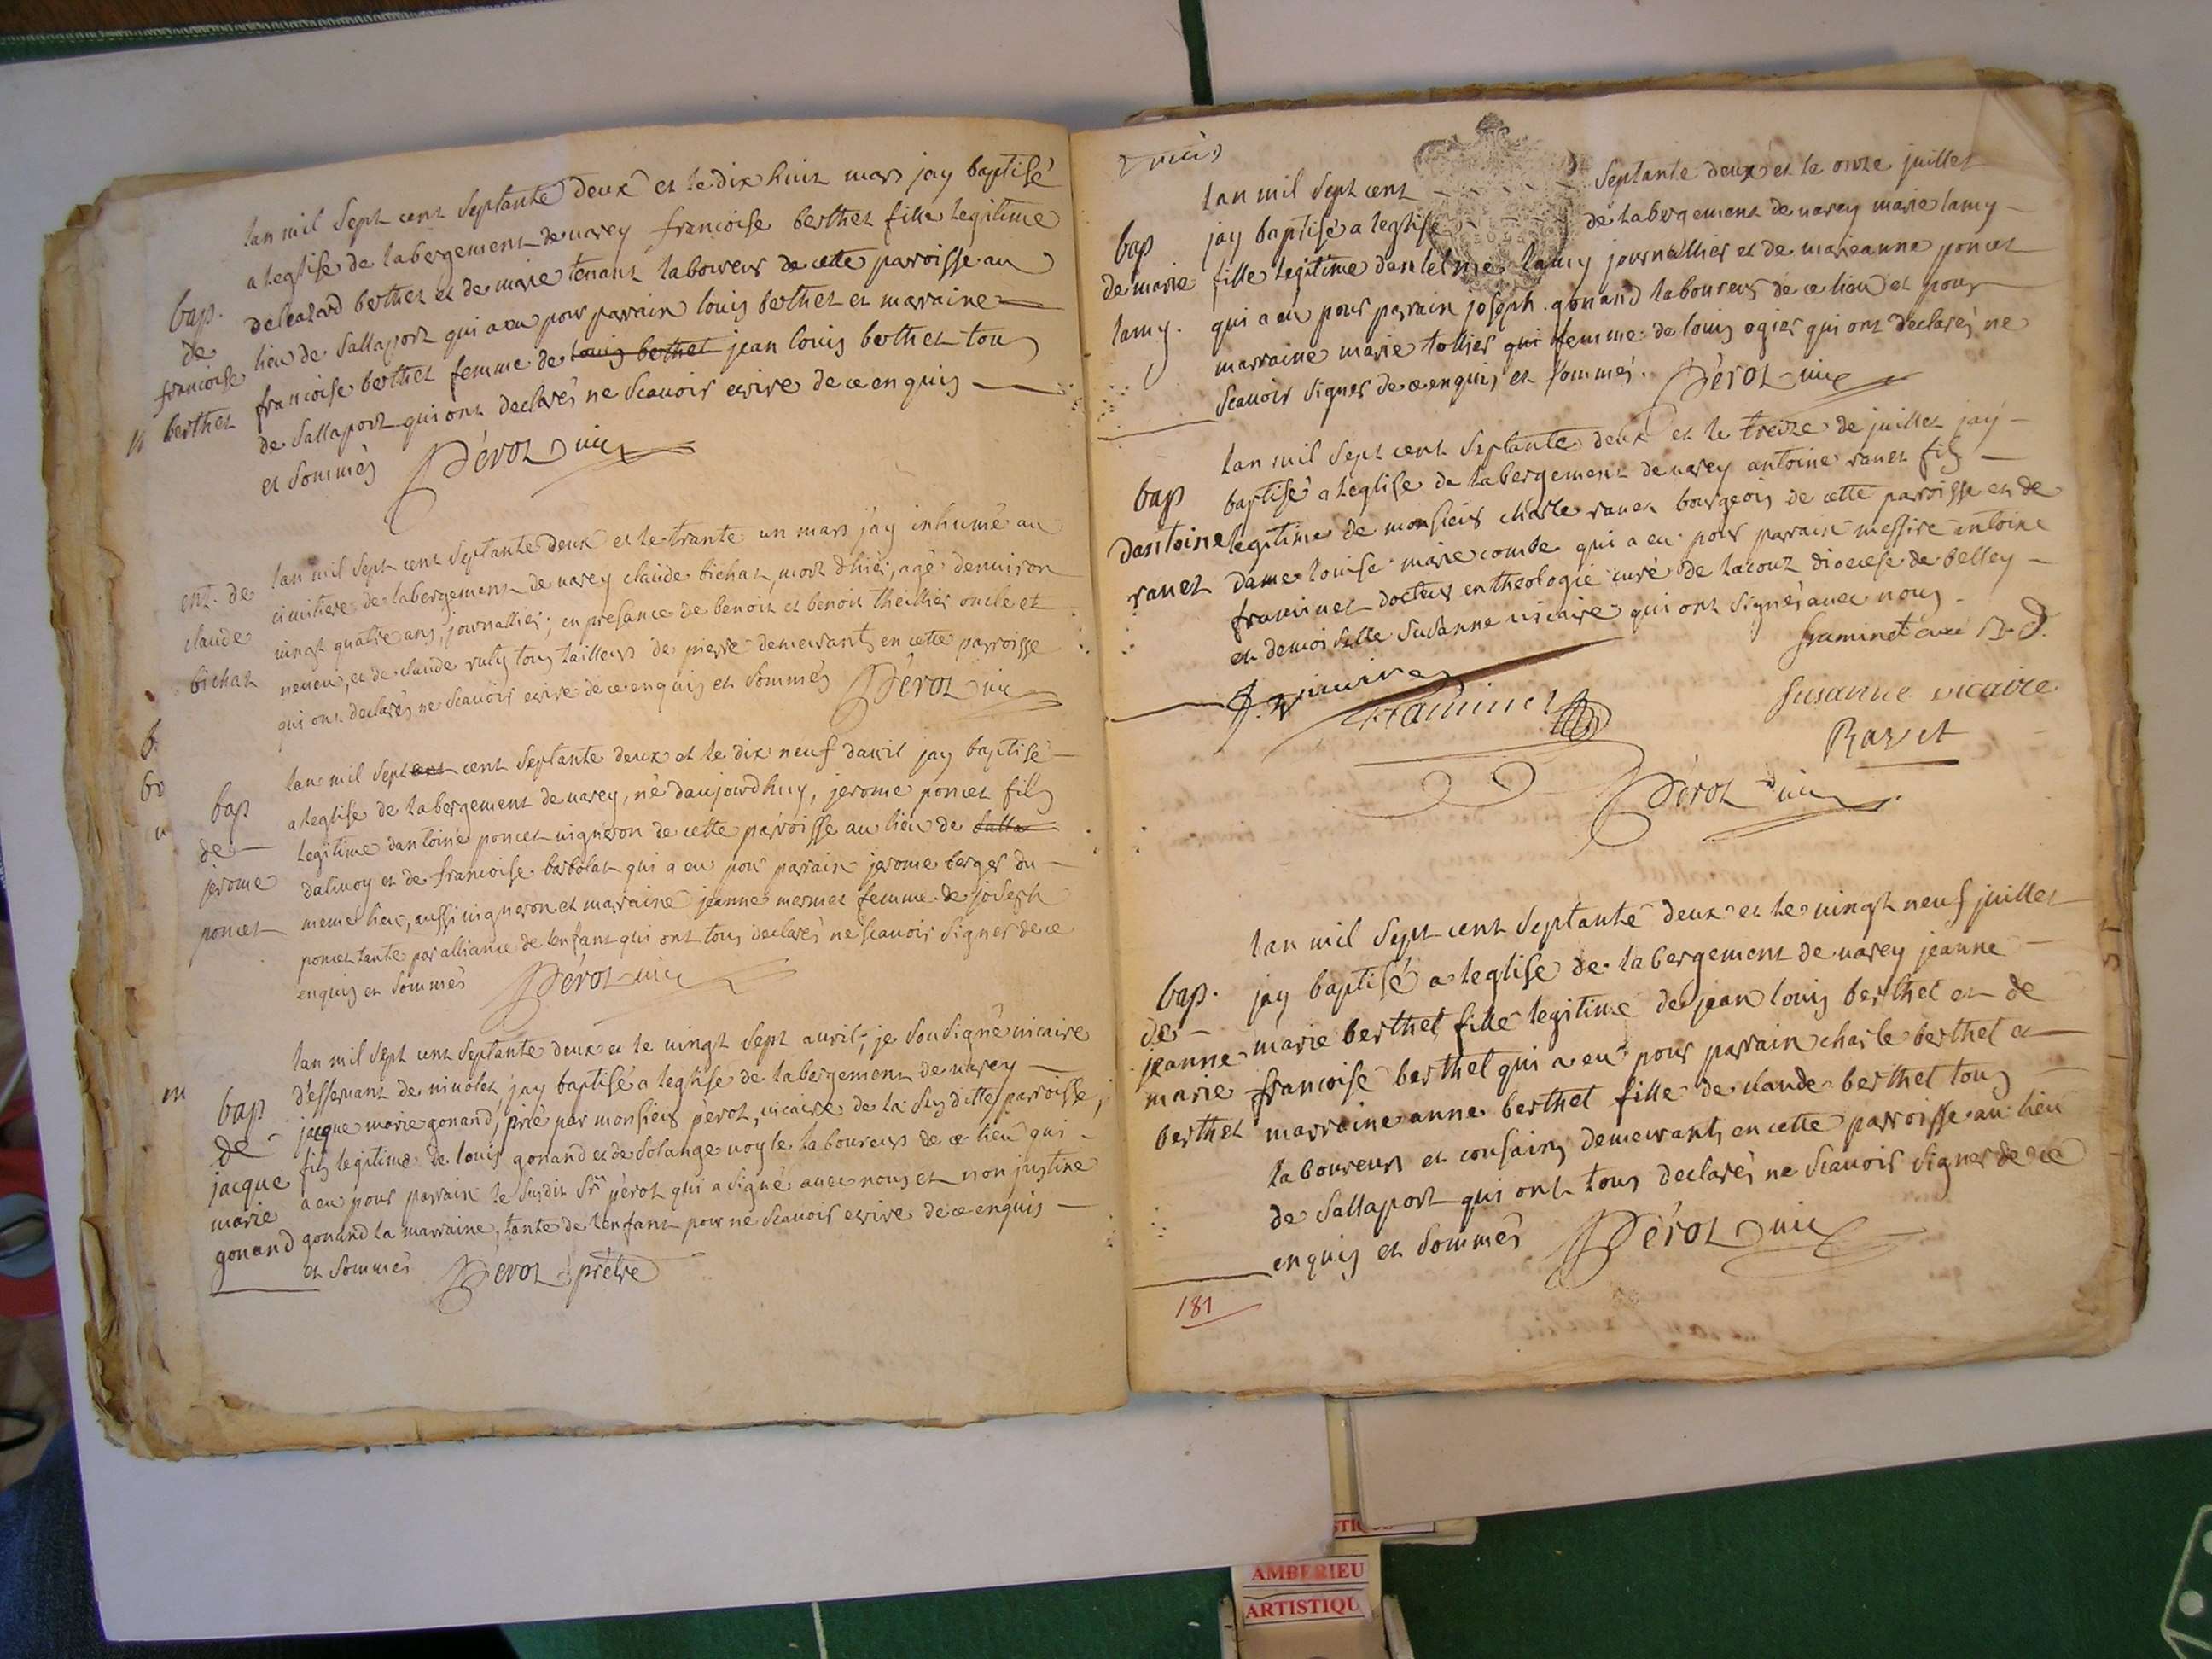 lan mil sept cent septante deux et le dix huit mars jay baptisé
a leglise de labergement de varey francoise berthet fille legitime
bap. deleazard berthet et de marie tenant laboureur de cette parroisse au
de lieu de sallaport qui a eu pour parrain louis berthet et maraine
francoise francoise berthet femme de louis berthet jean louis berthet tous
berthet de sallaport qui ont declarés ne scavoir ecrire de ce enquis
et sommés Pérot vic
lan mil sept cent septante deux et le trante un mars jay inhumé au
ent. de cimitiere de labergement de varey claude bichat, mort dhier, agé denviron
claude vingt quatre ans, journallier; en presance de benoit et benoit theillier oncle et
bichat neveu, et de claude ruly tous tailleurs de pierre demeurants en cette parroisse
qui ont declarés ne scavoir ecrire de ce enquis et sommés Pérot vic
lan mil sept cent cent septante deux et le dix neuf davril jay baptisé
bap a leglise de labergement de varey, né daujourdhuy, jerome poncet fils
de legitime dantoine poncet vigneron de cette parroisse au lieu de salla
jerome dalivoy et de francoise barbolat qui a eu pour parrain jerome berger du
poncet meme lieu, aussi vigneron et marraine jeanne mermet femme de joseph
poncet tante par alliance de lenfant qui ont tous declarés ne scavoir signer de ce
enquis et sommés Pérot vic
lan mil sept cent septante deux et le vingt sept avril, je sousigné vicaire
bap desservant de nivolet, jay baptisé a leglise de labergement de varey
de jacque marie gonand, prié par monsieur pérot, vicaire de la susditte parroisse,
jacque fils legitime de louis gonand et de solange voyle laboureurs de ce lieu qui
marie a eu pour parrain le susdit Sr pérot qui a signé avec nous et non justine
gonand gonand la marraine, tante de lenfant pour ne scavoir ecrire de ce enquis
et sommés Pérot prétre
lan mil sept cent septante deux et le onze juillet
bap jay baptisé a leglise de labergement de varey marie lamy
de marie fille legitime dantelme lamy journallier et de marieanne poncet
lamy. qui a eu pour parrain joseph gonand laboureur de ce lieu et pour
marraine marie tollier qui femme de louis ogier qui ont declarés ne
scavoir signer de ce enquis et sommés. Pérot vic
lan mil sept cent septante deux et le treize de juillet jay
bap baptisé a leglise de labergement de varey antoine ravet fils
dantoine legitime de monsieur charle ravet bourgeois de cette parroisse et de
ravet dame louise marie combe qui a eu pour parrain messire antoine
framinet docteur en theologie curé de lacouz diocese de belley
et demoiselle susanne vicaire qui ont signés avec nous
framinet curé
susanne vicaire
Ravet
Pérot vic
lan mil sept cent septante deux et le vingt neuf juillet
bap. jay baptisé a leglise de labergement de varey jeanne
de
jeanne marie berthet fille legitime de jean louis berthet et de
marie francoise berthet qui a eu pour parrain charle berthet et
berthet marraine anne berthet fille de claude berthet tous
laboureurs et cousains demeurants en cette parroisse au lieu
de sallaport qui ont tous declarés ne scavoir signer de ce
enquis et sommés Pérot vic
181
AMBERIEU
ARTISTIQU